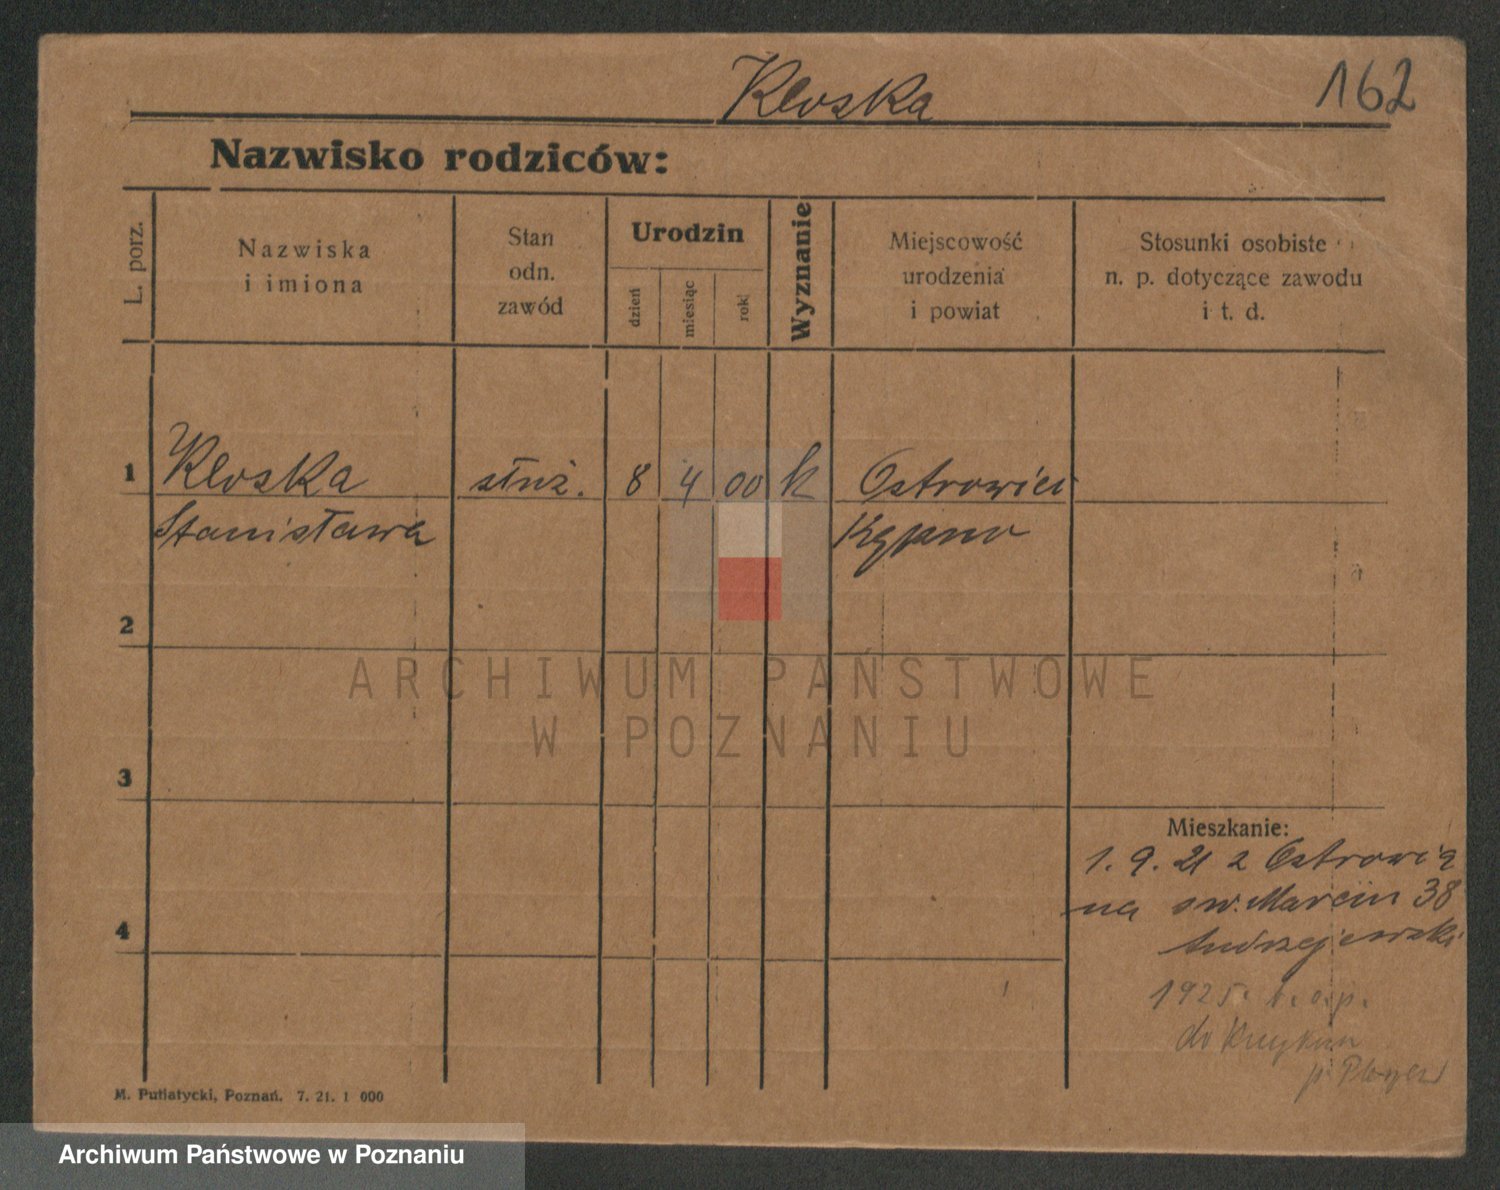 Kloska
162
Nazwisko rodziców:
L. porz.
Nazwiska
i imiona
Stan
odn.
zawód
Urodzin
dzień
miesiąc
rok
Wyznanie
Miejscowość
urodzenia
i powiat
Stosunki osobiste
n. p. dotyczące zawodu
i t. d.
1
Kloska
służ.
8
4
00
k
Ostrowiec
Stanisława
Kępno
2
3
4
Mieszkanie:
1. 9. 21 z
na św. Marcin 38
Andrzejewski
1925. b. o. p.
do
p.
M. Putiatycki, Poznań. 7. 21. 1 000
ARCHIWUM PAŃSTWOWE
W POZNANIU
Archiwum Państwowe w Poznaniu